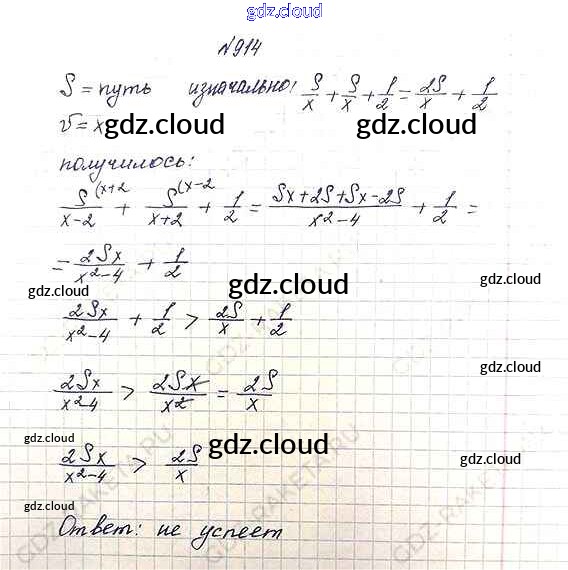 gdz.cloud
№914
S = путь изначально: S/x + S/x + 1/2 = 2S/x + 1/2
v = x gdz.cloud gdz.cloud
получилось:
S(x+2/x-2 + S(x-2/x+2 + 1/2 = Sx+2S+Sx-2S/x²-4 + 1/2 =
= 2Sx/x²-4 + 1/2
gdz.cloud gdz.cloud gdz.cloud
2Sx/x²-4 + 1/2 > 2S/x + 1/2
gdz.cloud
2Sx/x²-4 > 2Sx/x² = 2S/x
gdz.cloud gdz.cloud
2Sx/x²-4 > 2S/x
gdz.cloud gdz.cloud
gdz.cloud
Ответ: не успеет
GDZ-RAKETA.RU
GDZ-RAKETA.RU
GDZ-RAKETA.RU